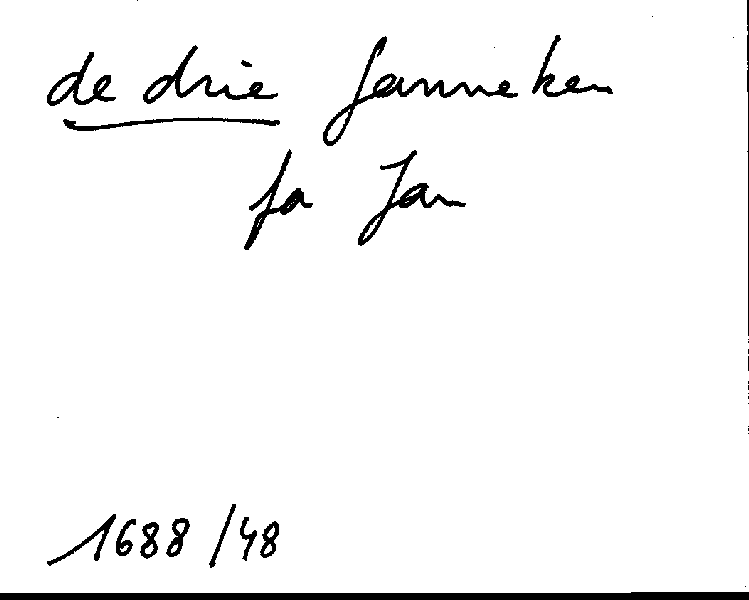 de drie Janneken
fa Jan
1688/48